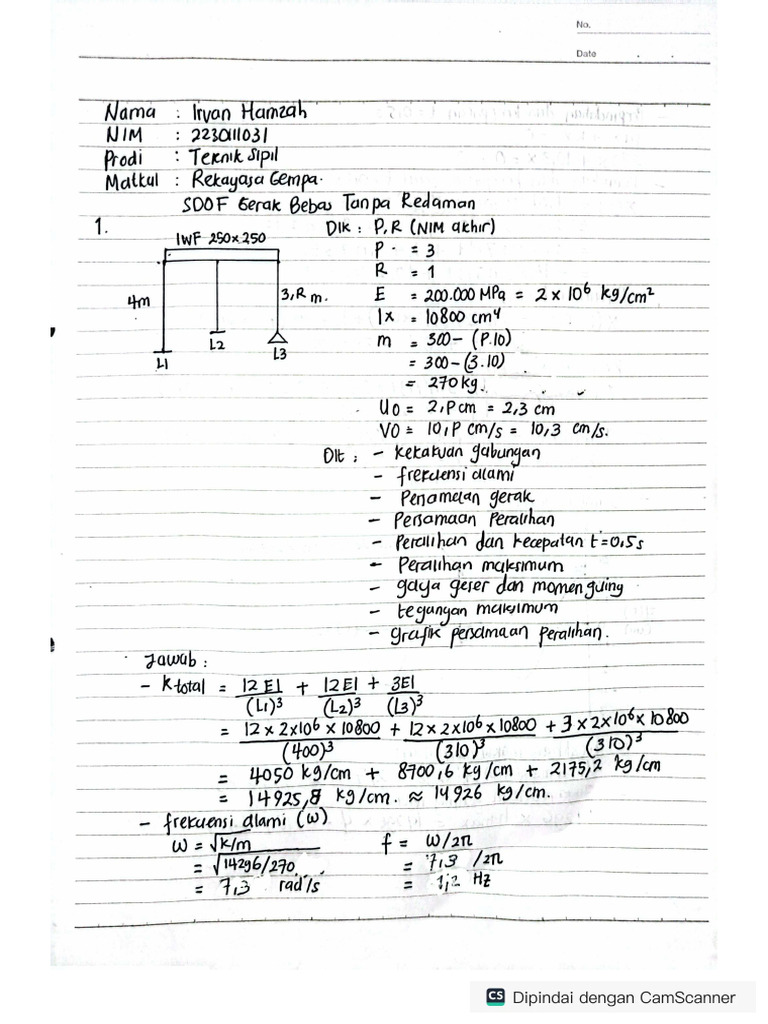 No.
Date
Nama : Irvan Hamzah
NIM : 2230111031
Prodi : Teknik Sipil
Matkul : Rekayasa Gempa.
SDOF Gerak Bebas Tanpa Redaman
1.
IWF 250x250
4m
3,R m.
L1
L2
L3
Dik : P, R (NIM akhir)
P = 3
R = 1
E = 200.000 MPa = 2 x 10⁶ kg/cm²
Ix = 10800 cm⁴
m = 300 - (P.10)
= 300 - (3.10)
= 270 kg.
Uo = 2,P cm = 2,3 cm
VO = 10,P cm/s = 10,3 cm/s.
Dit : - kekakuan gabungan
- frekuensi alami
- Persamaan gerak
- Persamaan Peralihan
- Peralihan dan kecepatan t=0,5s
- Peralihan maksimum
- gaya geser dan momen guing
- tegangan maksimum
- grafik persamaan peralihan.
Jawab :
- k total = 12 EI/(L1)³ + 12EI/(L2)³ + 3EI/(L3)³
= 12 x 2x10⁶ x 10800/(400)³ + 12 x 2x10⁶ x 10800/(310)³ + 3 x 2x10⁶ x 10800/(310)³
= 4050 kg/cm + 8700,6 kg/cm + 2175,2 kg/cm
= 14925,8 kg/cm. ≈ 14926 kg/cm.
- frekuensi alami (ω)
ω = √k/m f = ω/2π
= √14296/270 = 7,3 /2π
= 7,3 rad/s = 1,2 Hz
CS Dipindai dengan CamScanner